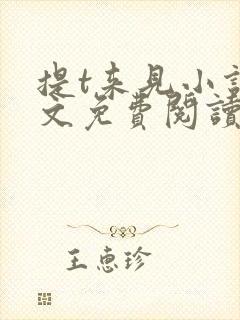 提t来见小說
文免費閱讀
王惠珍